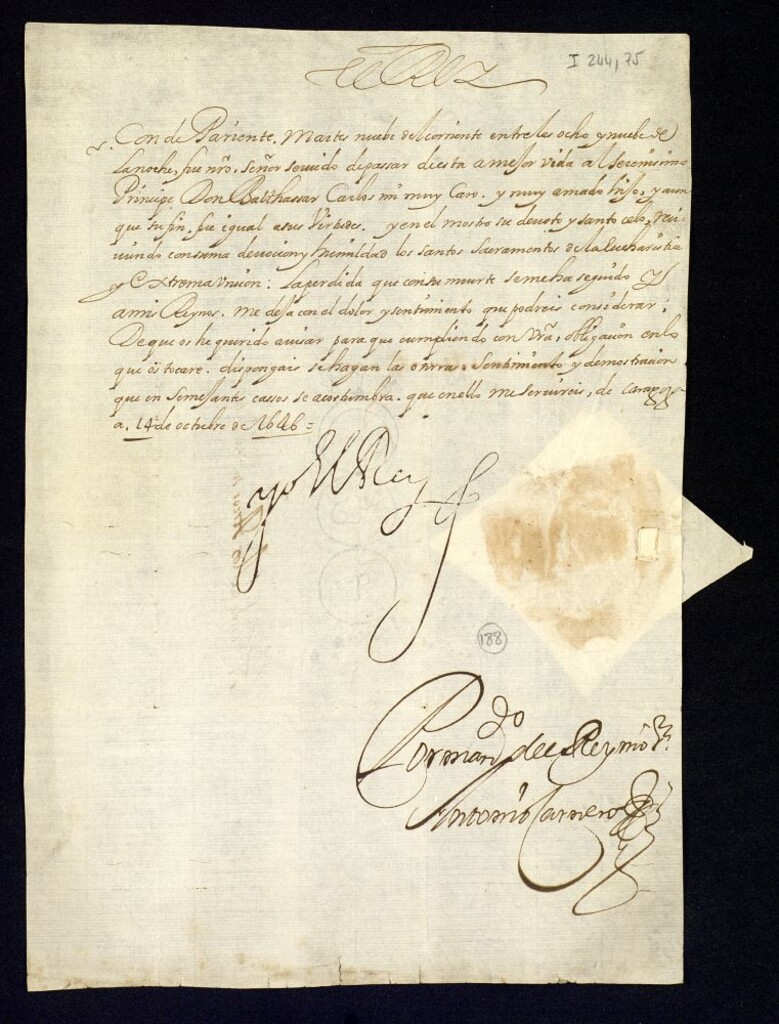 El Rey
I 244, 75
Conde Pariente. Martes nuebe del corriente entre las ocho y nuebe de
la noche, fue nro. señor seruido de passar desta a mejor vida al serenissimo
Principe Don Balthassar Carlos mi muy Caro. y muy amado hijo, y aun
que su fin, fue igual a sus Virtudes. y en el mostro su deuoto y santo celo, reci
uiendo con suma deuocion y humildad los santos Sacramentos de la Eucharistia
y Extrema uncion: La perdida que con su muerte se me ha seguido y
a mis Reynos. me deja con el dolor y sentimiento que podreis considerar:
De que os he querido auisar para que cumpliendo con vra. obligacion en lo
que os tocare. dispongais se hagan las onrras. sentimiento y demostracion
que en semejantes cassos se acostumbra. que en ello me seruireis, de Carago
a. 14 de octubre de 1646 =
yo El Rey
188
Por mando del Rey nro sr.
Antonio Carnero